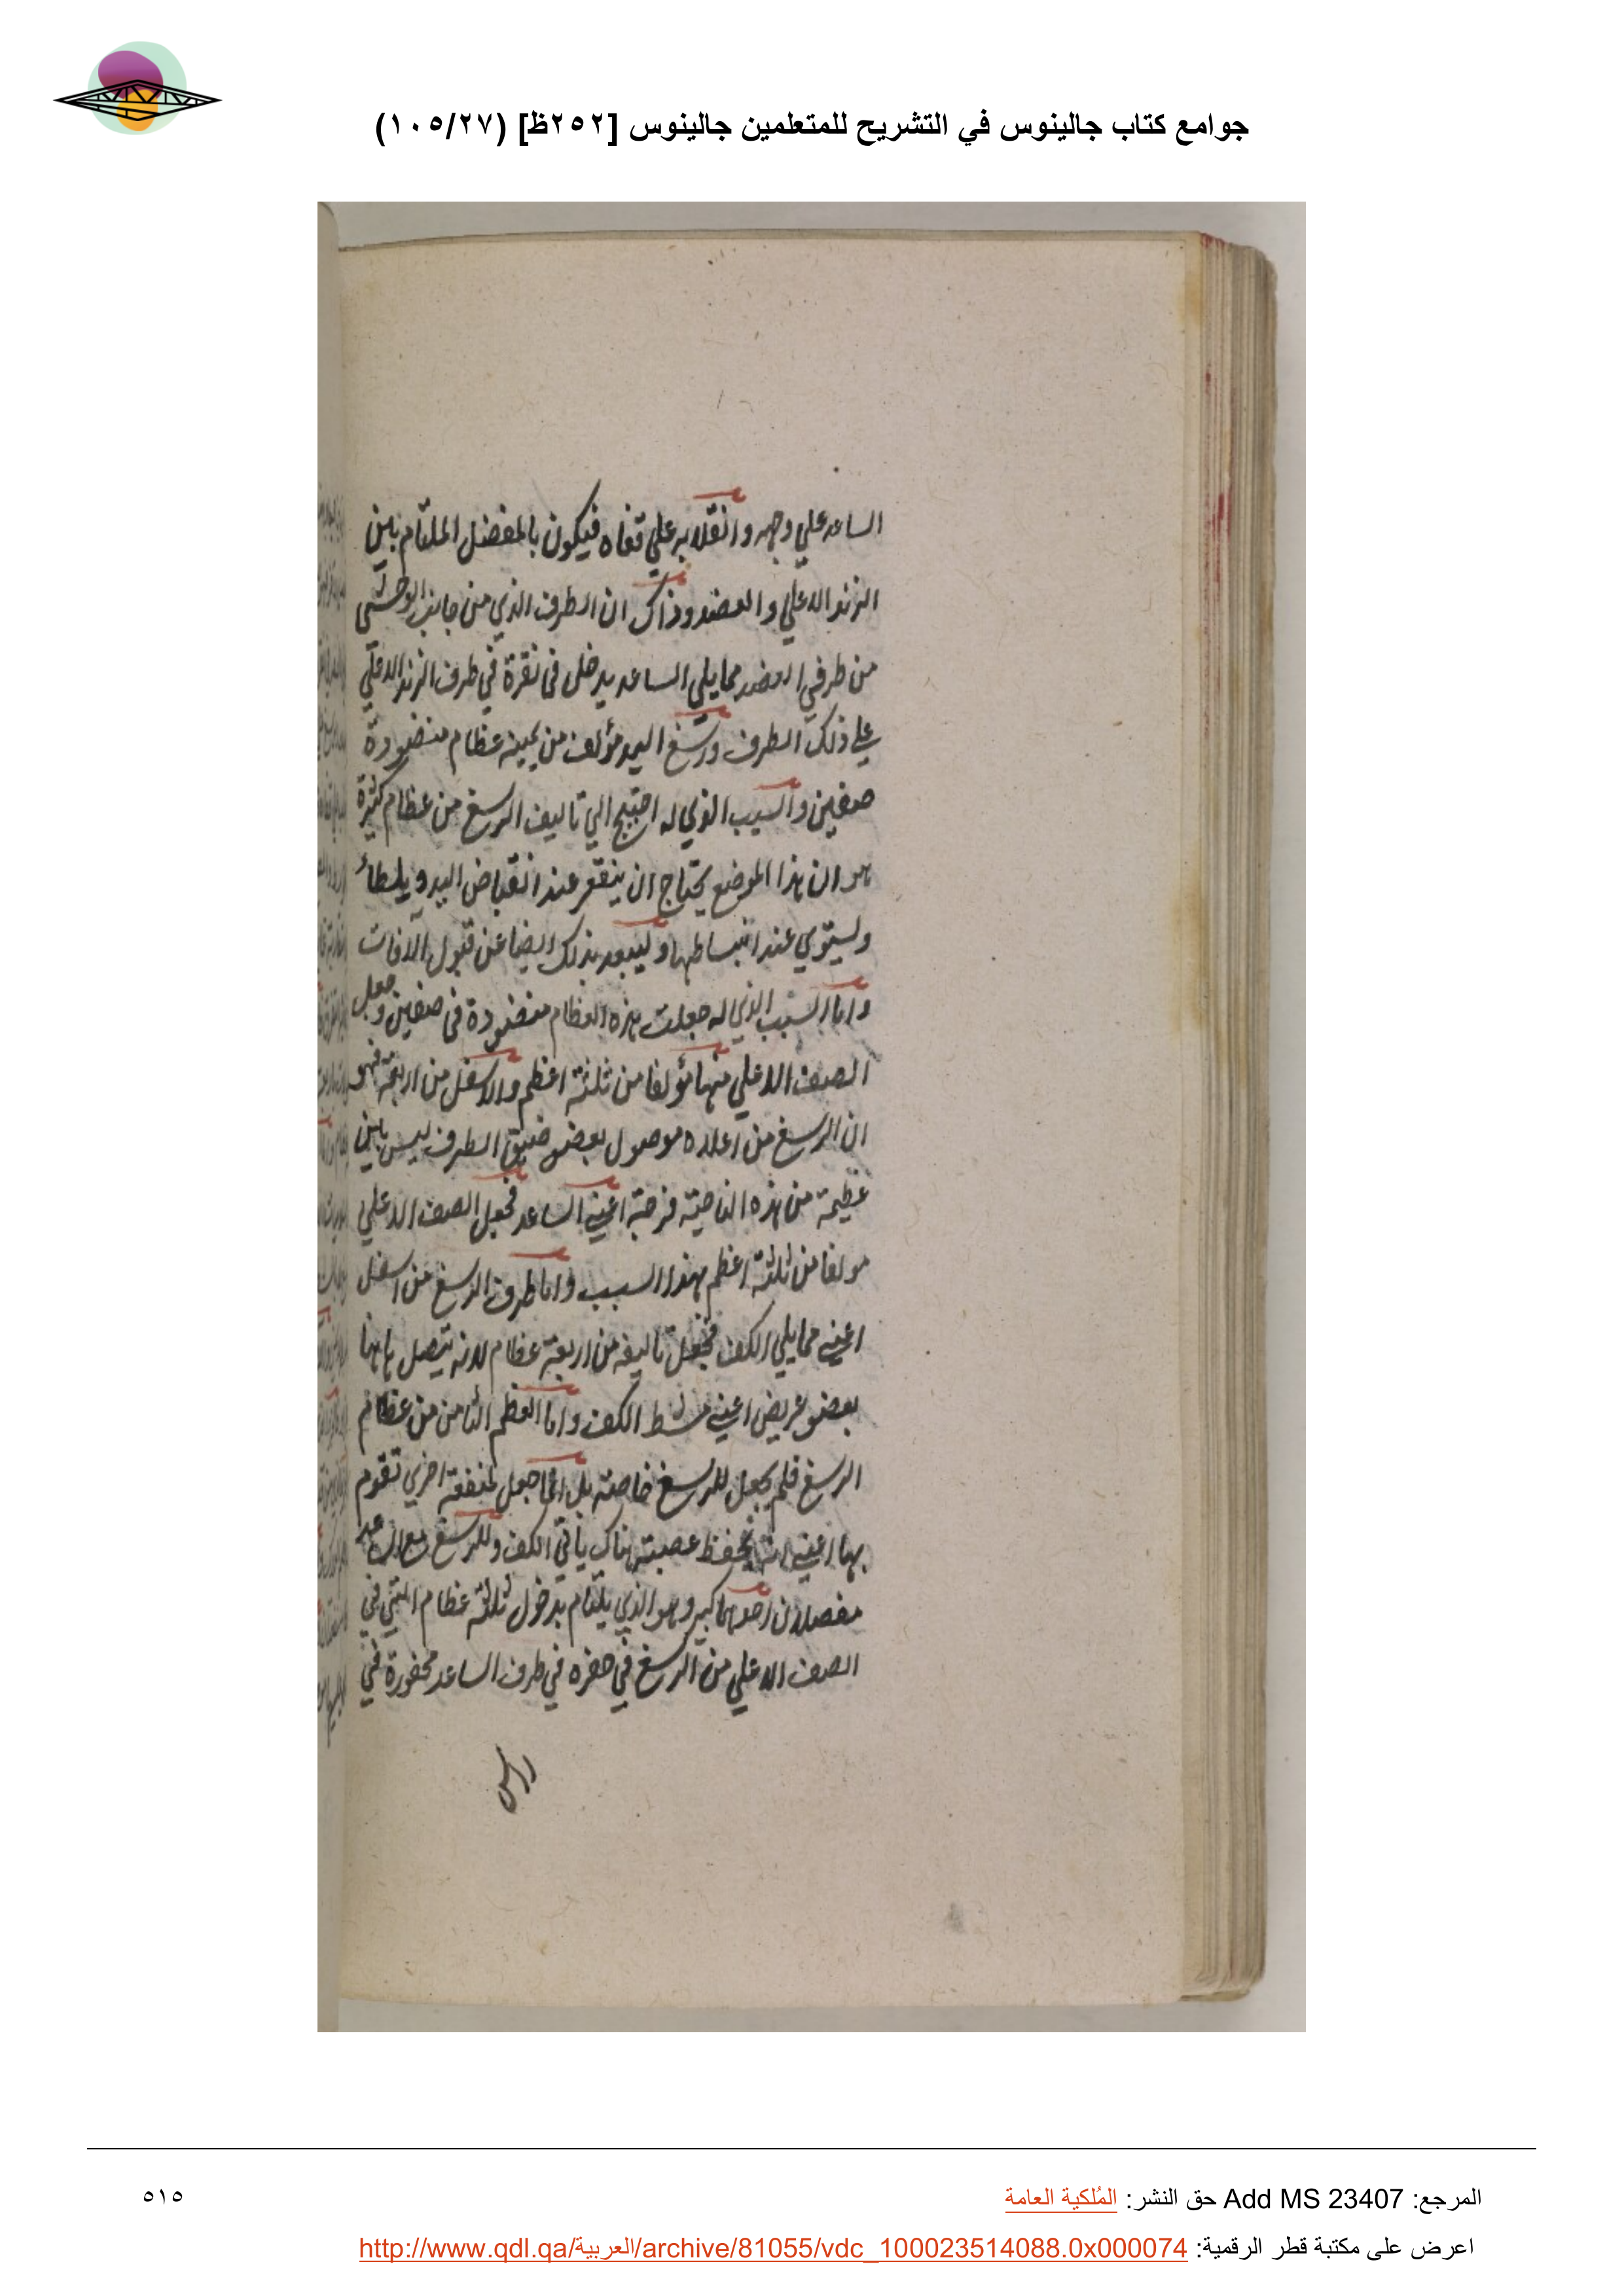 جوامع كتاب جالينوس في التشريح للمتعلمين جالينوس [٢٥٢ظ] (١٠٥/٢٧)
الساعد علي وجهه وانقلابه علي قفاه فيكون بالمفصل الملتام بين
الزند الاعلي والعضد وذاك ان الطرف الذي من جانب الوحشي
من طرفي العضد مما يلي الساعد يدخل في نقرة في طرف الزند الاعلي
علي ذلك الطرف ورسغ اليد مؤلف من ثمينه عظام منضودة
صفين والسبب الذي له احتيج الي تاليف الرسغ من عظام كثيرة
هو ان هذا الموضع يحتاج ان يتقعر عند انقباض اليد ويلطأ
ويستوي عند انبساطها وليبعد بذلك ايضا عن قبول الآفات
واما السبب الذي له جعلت هذه العظام منضودة في صفين وجعل
الصف الاعلي منها مؤلفا من ثلثة اعظم والاسفل من اربعة فهو
ان الرسغ من اعلاه موصول بعضو ضيق الطرف ليس بين
عظيمة من هذه الناحية فرجة اعني الساعد فجعل الصف الاعلي
مولفا من ثلثة اعظم بهذا السبب واما طرف الرسغ من اسفل
اعني مما يلي الكف فجعل تاليفه من اربعة عظام لانه يتصل هاهنا
بعضو عريض اعني مشط الكف واما العظم الثامن من عظام
الرسغ فلم يجعل للرسغ خاصة بل انما جعل لمنفعة اخري تقوم
بها اعني انه يحفظ عصبة هناك ياتي الكف وللرسغ مع الساعد
مفصلان احدهما كبير وهو الذي يلتام بدخول ثلثة عظام التي في
الصف الاعلي من الرسغ في حفره في طرف الساعد محفورة في
المرجع: Add MS 23407 حق النشر: المُلكية العامة
٥١٥
اعرض على مكتبة قطر الرقمية: http://www.qdl.qa/العربية/archive/81055/vdc_100023514088.0x000074